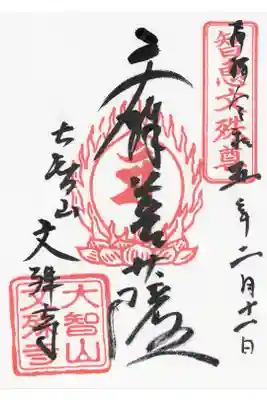 智恵文殊尊
奉拝 令和五年二月十一日
文殊菩薩
大智山
文殊寺
大智山
文殊寺